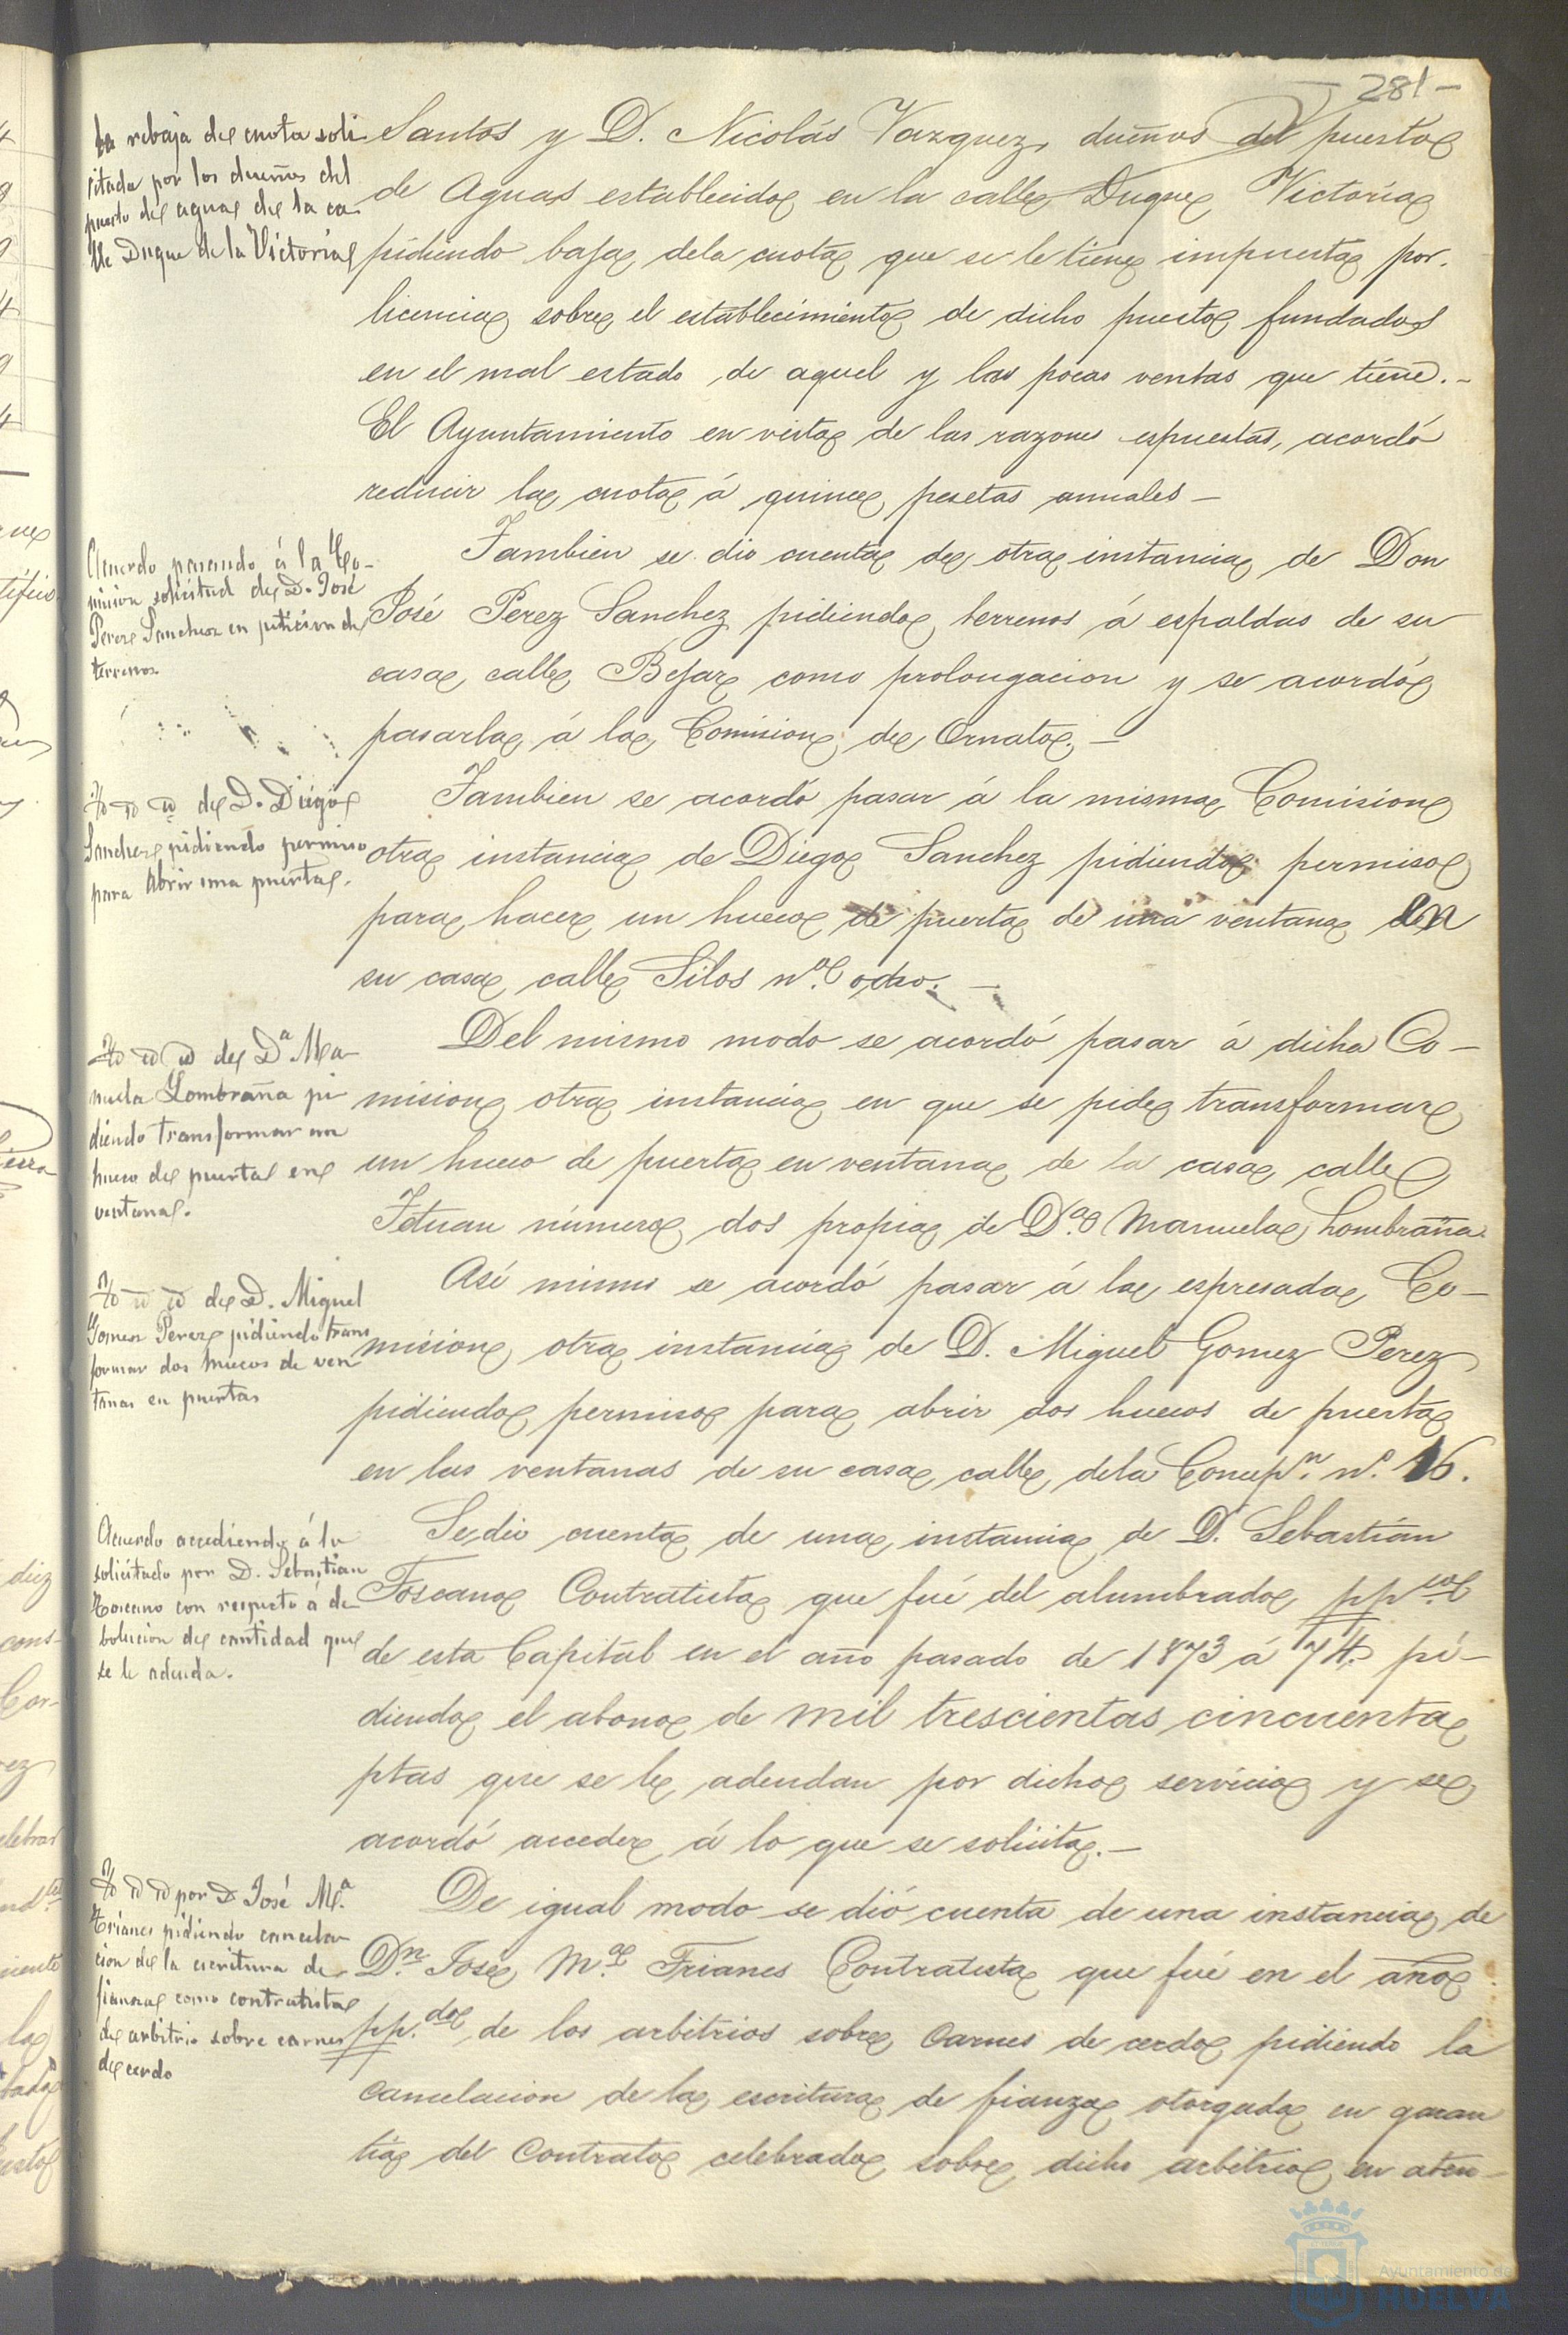 281-
la rebaja de cuota soli
citada por los dueños del
puesto de aguas de la ca
lle Duque de la Victoria
Santos y D. Nicolás Vazquez, dueños del puesto
de Aguas establecido en la calle Duque Victoria
pidiendo baja de la cuota que se le tiene impuesta por
licencia sobre el establecimiento de dicho puesto fundados
en el mal estado de aquel y las pocas ventas que tiene.-
El Ayuntamiento en vista de las razones espuestas, acordó
reducir la cuota á quince pesetas anuales-
Acuerdo pasando á la Co-
mision solicitud de D. José
Perez Sanchez en peticion de
terrenos
Tambien se dio cuenta de otra instancia de Don
José Perez Sanchez pidiendo terrenos á espaldas de su
casa calle Bejar como prolongacion y se acordó
pasarla á la Comision de Ornato.-
Yd id id de D. Diego
Sanchez pidiendo permiso
para abrir una puerta.
Tambien se acordó pasar á la misma Comision
otra instancia de Diego Sanchez pidiendo permiso
para hacer un hueco de puerta de una ventana en
su casa calle Silos nº ocho.-
Yd id id de Dª Ma-
nuela Lombraña pi
diendo transformar un
hueco de puerta en
ventana.
Del mismo modo se acordó pasar á dicha Co-
mision otra instancia en que se pide transformar
un hueco de puerta en ventana de la casa calle
Tetuan número dos propia de Dª Manuela Lombraña.
Yd id id de D. Miguel
Gomez Perez pidiendo trans
formar dos huecos de ven
tanas en puertas
Asi mismo se acordó pasar á la espresada Co-
mision otra instancia de D. Miguel Gomez Perez
pidiendo permiso para abrir dos huecos de puerta
en las ventanas de su casa calle de la Concepn. nº. 16.
Acuerdo accediendo á lo
solicitado por D. Sebastian
Toscano con respecto á de
bolucion de cantidad que
se le adeuda.
Se dio cuenta de una instancia de D. Sebastian
Toscano Contratista que fué del alumbrado ppcol
de esta Capital en el año pasado de 1873 á 74 pi-
diendo el abono de mil trescientas cincuenta
ptas que se le adeudan por dicho servicio y se
acordó acceder á lo que se solicita.-
Yd id id por D José Mª
Trianes pidiendo cancela
cion de la escritura de
fianza como contratista
de arbitrio sobre carnes
de cerdo
De igual modo se dió cuenta de una instancia de
Dn. José Mª. Trianes Contratista que fué en el año
pp.do de los arbitrios sobre Carnes de cerdo pidiendo la
cancelacion de la escritura de fianza otorgada en garan
tia del Contrato celebrado sobre dicho arbitrio en aten-
Ayuntamiento de
HUELVA